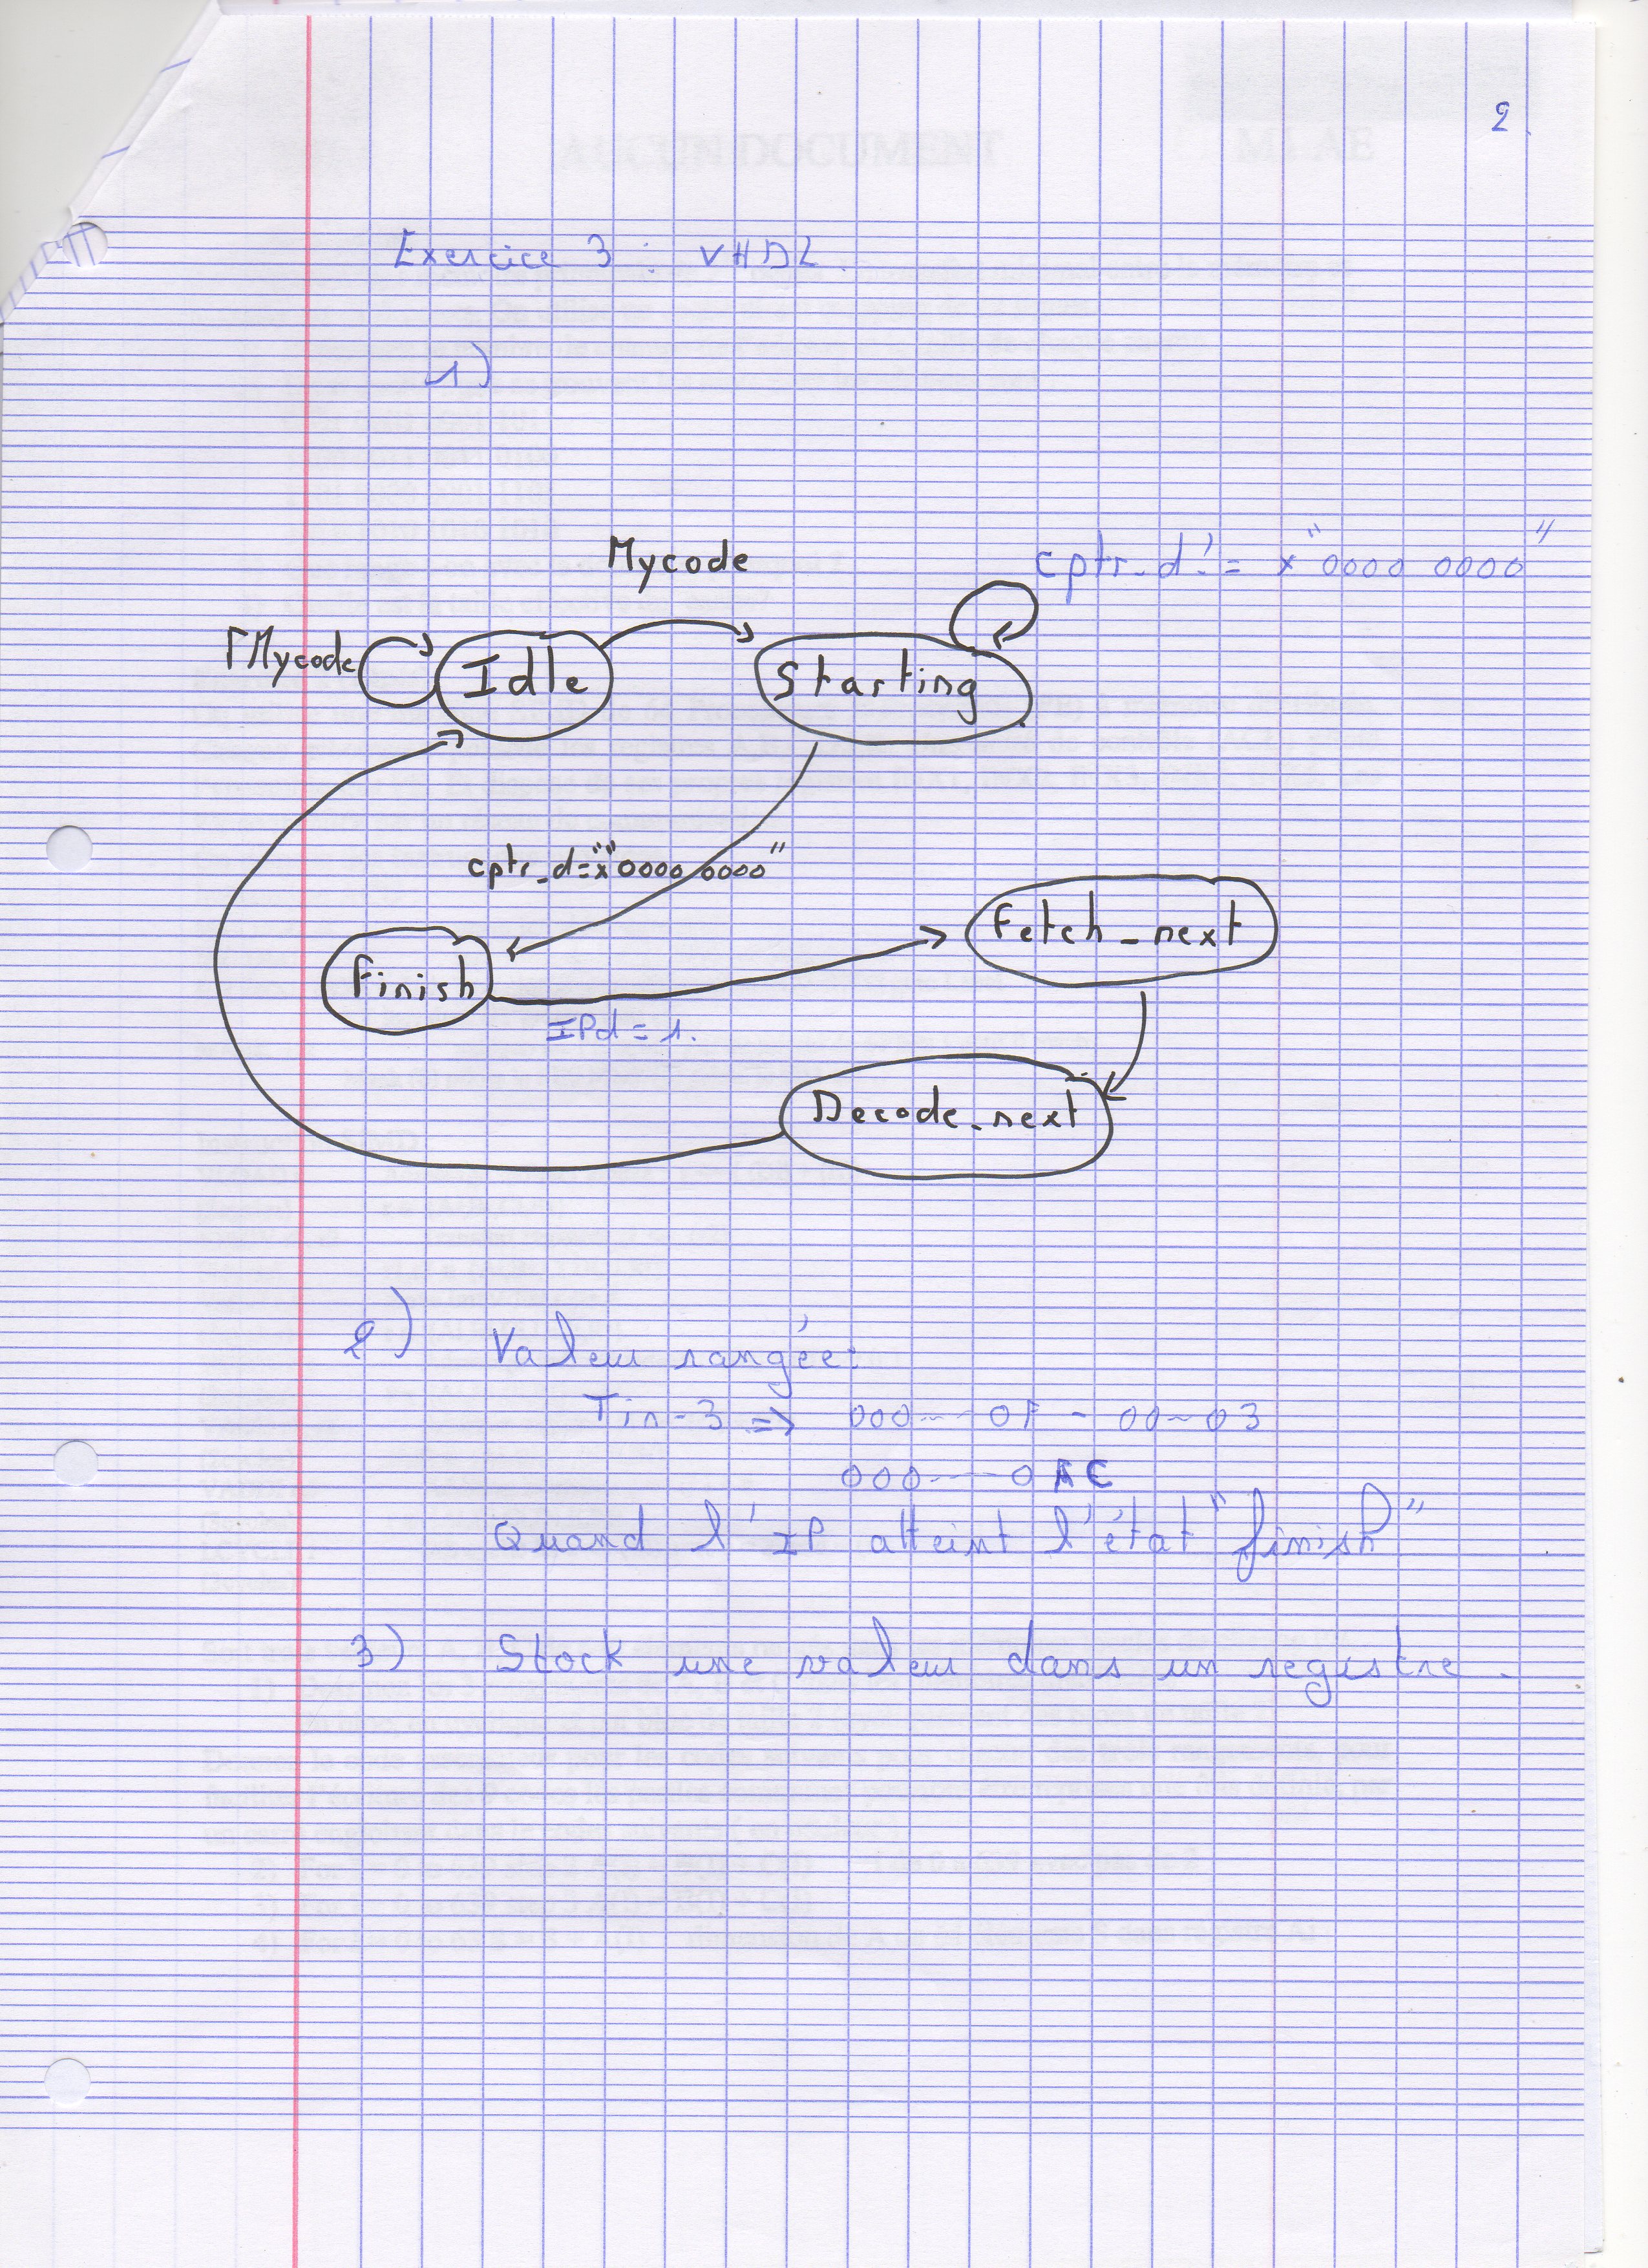 2
Exercice 3 : VHDL
1)
Mycode
cptr_d != x"0000 0000"
Mycode
Idle
Starting
cptr_d = x"0000 0000"
Fetch_next
Finish
IPd = 1.
Decode_next
2) Valeur rangée :
Tin-3 => 000---0F - 00-03
000----0AC
Quand l'IP atteint l'état "finish"
3) Stock une valeur dans un registre.